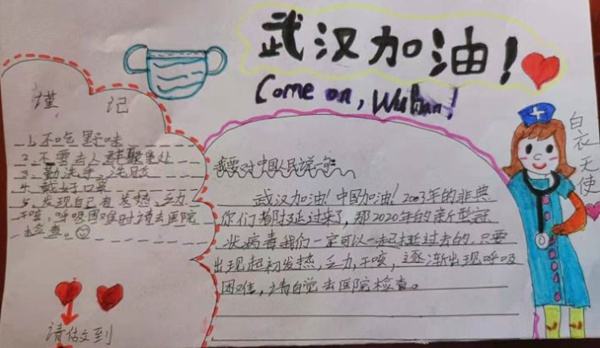 武汉加油!
Come on, Wuhan!
谨记
1、不吃野味
2、不要去人群聚集处
3、勤洗手、洗口
4、戴好口罩
5、发现自己有发热,乏力
干咳,呼吸困难时请去医院
检查。
请做到
我要对中国人民说一
武汉加油!中国加油!2003年的非典
你们都挺过来了,那2020年的新型冠
状病毒我们一定可以一起挺过去的,只要
出现起初发热,乏力,干咳,逐渐出现呼吸
困难,请自觉去医院检查。
白衣天使